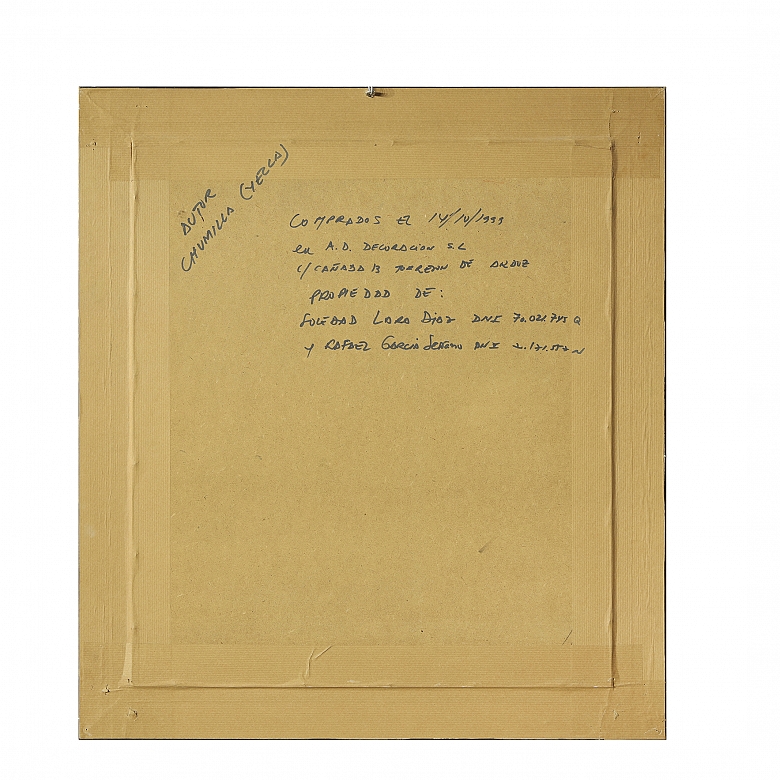 AUTOR
CHUMILLA (YECLA)
COMPRADOS EL 14/10/1999
en A.D. DECORACION S.L
C/ CAÑADA 13 TORREJON DE ARDOZ
PROPIEDAD DE:
SOLEDAD LARA DIAZ DNI
Y RAFAEL GARCIA DNI